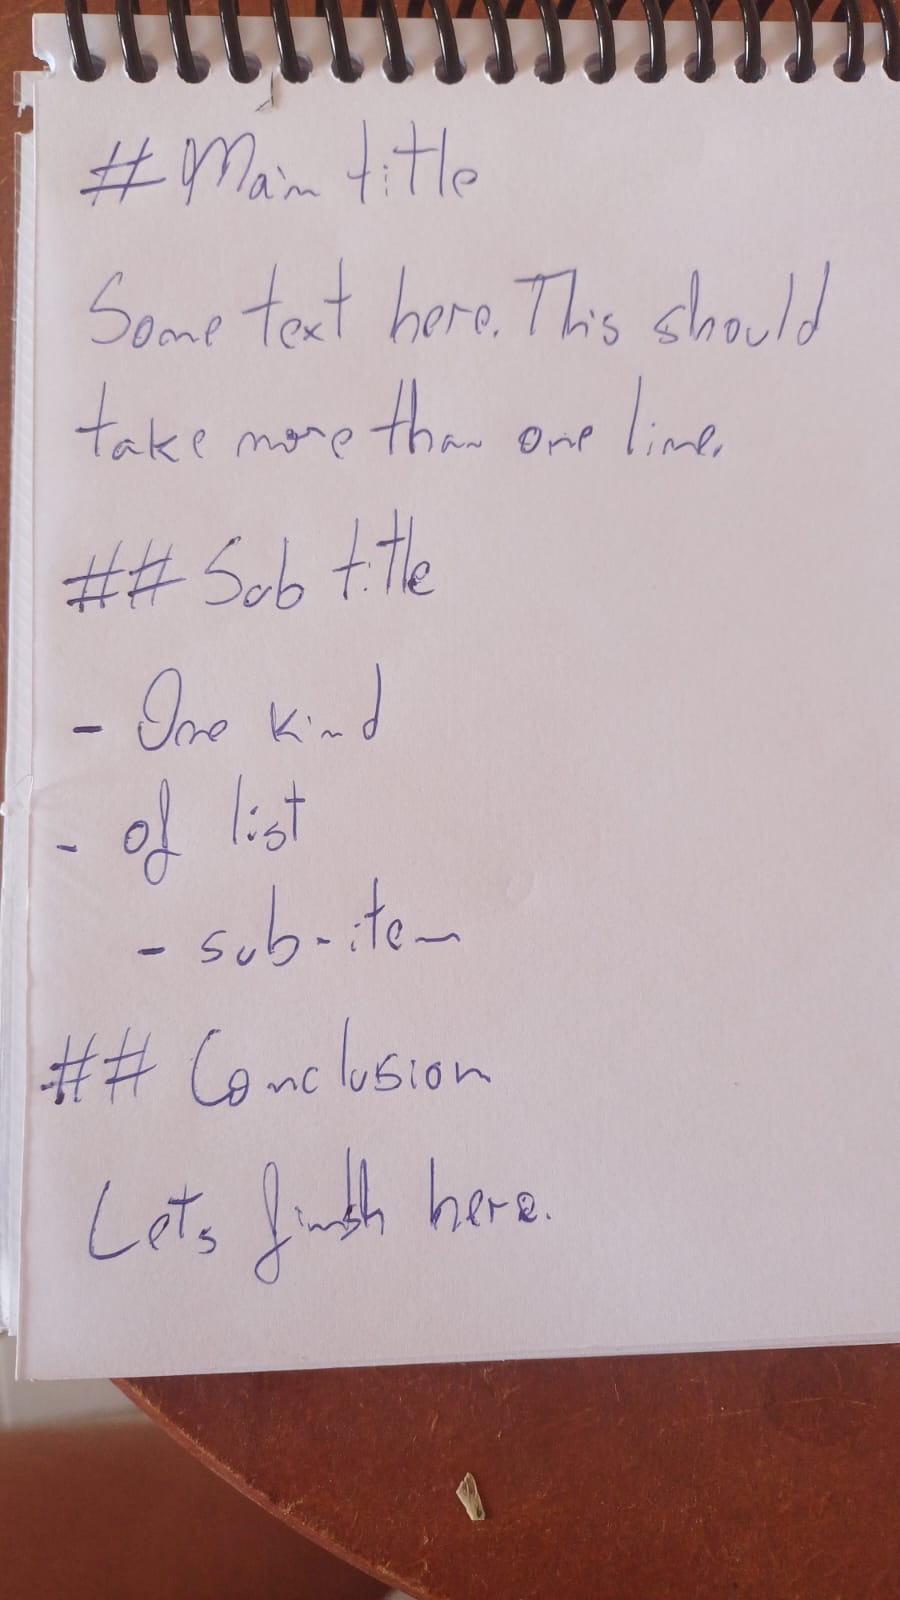 # Main title
Some text here. This should
take more than one line.
## Sub title
- One kind
- of list
- sub-item
## Conclusion
Lets finish here.